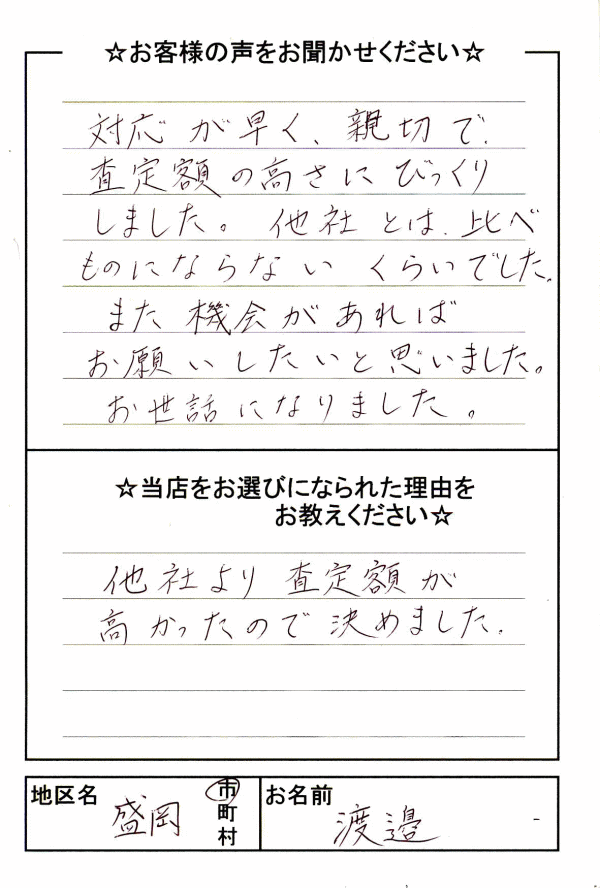 ☆お客様の声をお聞かせください☆
対応が早く、親切で、
査定額の高さにびっくり
しました。他社とは、比べ
ものにならないくらいでした。
また機会があれば
お願いしたいと思いました。
お世話になりました。
☆当店をお選びになられた理由を
お教えください☆
他社より査定額が
高かったので決めました。
地区名 盛岡 市
町
村
お名前 渡邉